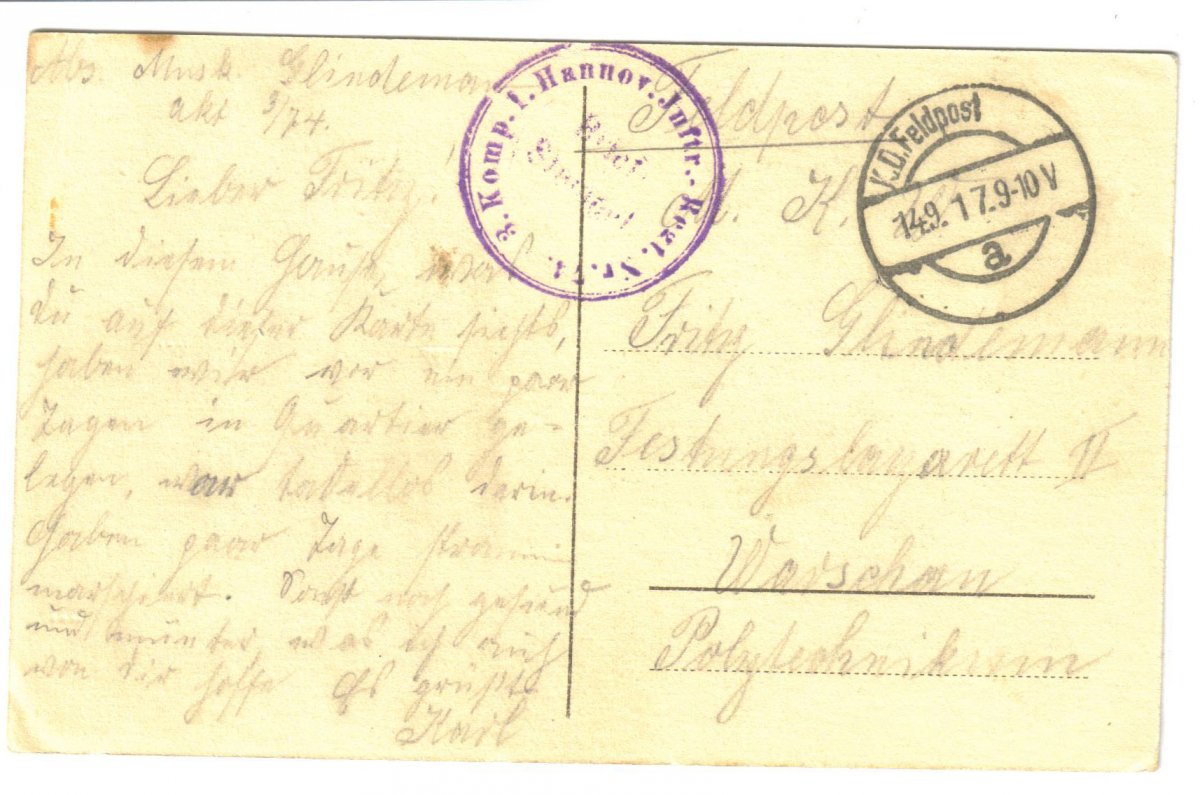 Abs. Musk. Glindemann
akt 3/74.
Lieber Fritz!
In diesem Hause, was
du auf dieser Karte siehst,
haben wir vor ein paar
Tagen in Quartier ge-
legen, war tadellos darin.
Haben paar Tage stramm
marschiert. Sonst noch gesund
und munter, was ich auch
von dir hoffe Es grüßt
Karl
3. Komp. 1. Hannov. Inftr.-Regt. Nr. 74.
Brief-
Stempel
Feldpost
K.D. Feldpost
14.9.17.9-10V
a
Fritz Glindemann
Festungslazarett II
Warschau
Polytechnikum